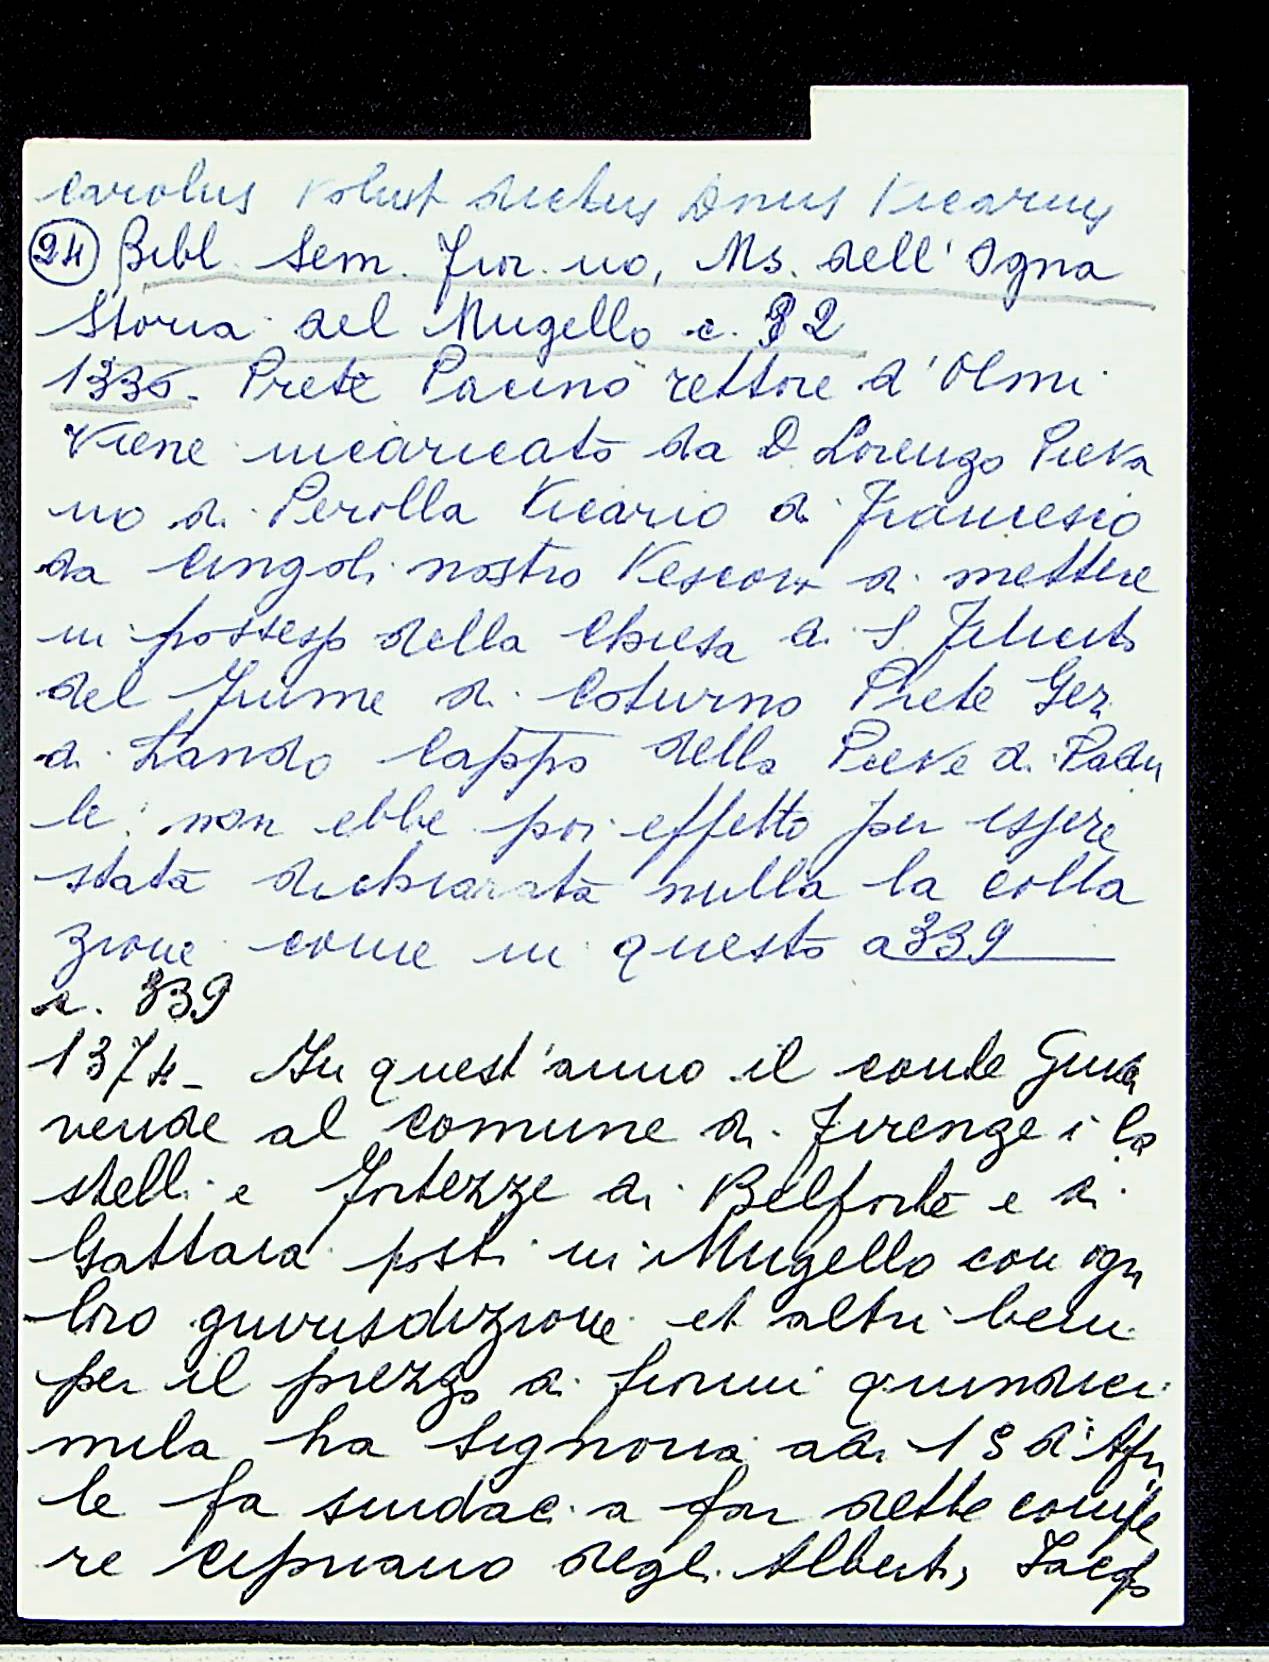 Carolus voluit dictus Dnus Vicarius
24 Bibl. Sem. Fior.no, Ms. dell'Ogna
Storia del Mugello c. 32
1335. Prete Pacino rettore d'Olmi
viene incaricato da D. Lorenzo Pieva
no di Perolla Vicario di Francesco
da Cingoli nostro Vescovo di mettere
in possesso della Chiesa di S.
del Fiume di Coturno Prete Ger.
di Lando Capp.o della Pieve di Padu
le: non ebbe poi effetto per essere
stata dichiarata nulla la colla
zione come in questo a 339
c. 339
1374 - In quest'anno il conte
vende al comune di Firenze i Ca
stelli e Fortezze di Belforte e di
Gattaia posti in Mugello con ogni
loro giurisdizione et altri beni
per il prezzo di fiorini quindici
mila la Signoria adì 18 d'Apri
le fa sindaci a far dette compe
re Cipriano degli Alberti, Jacopo